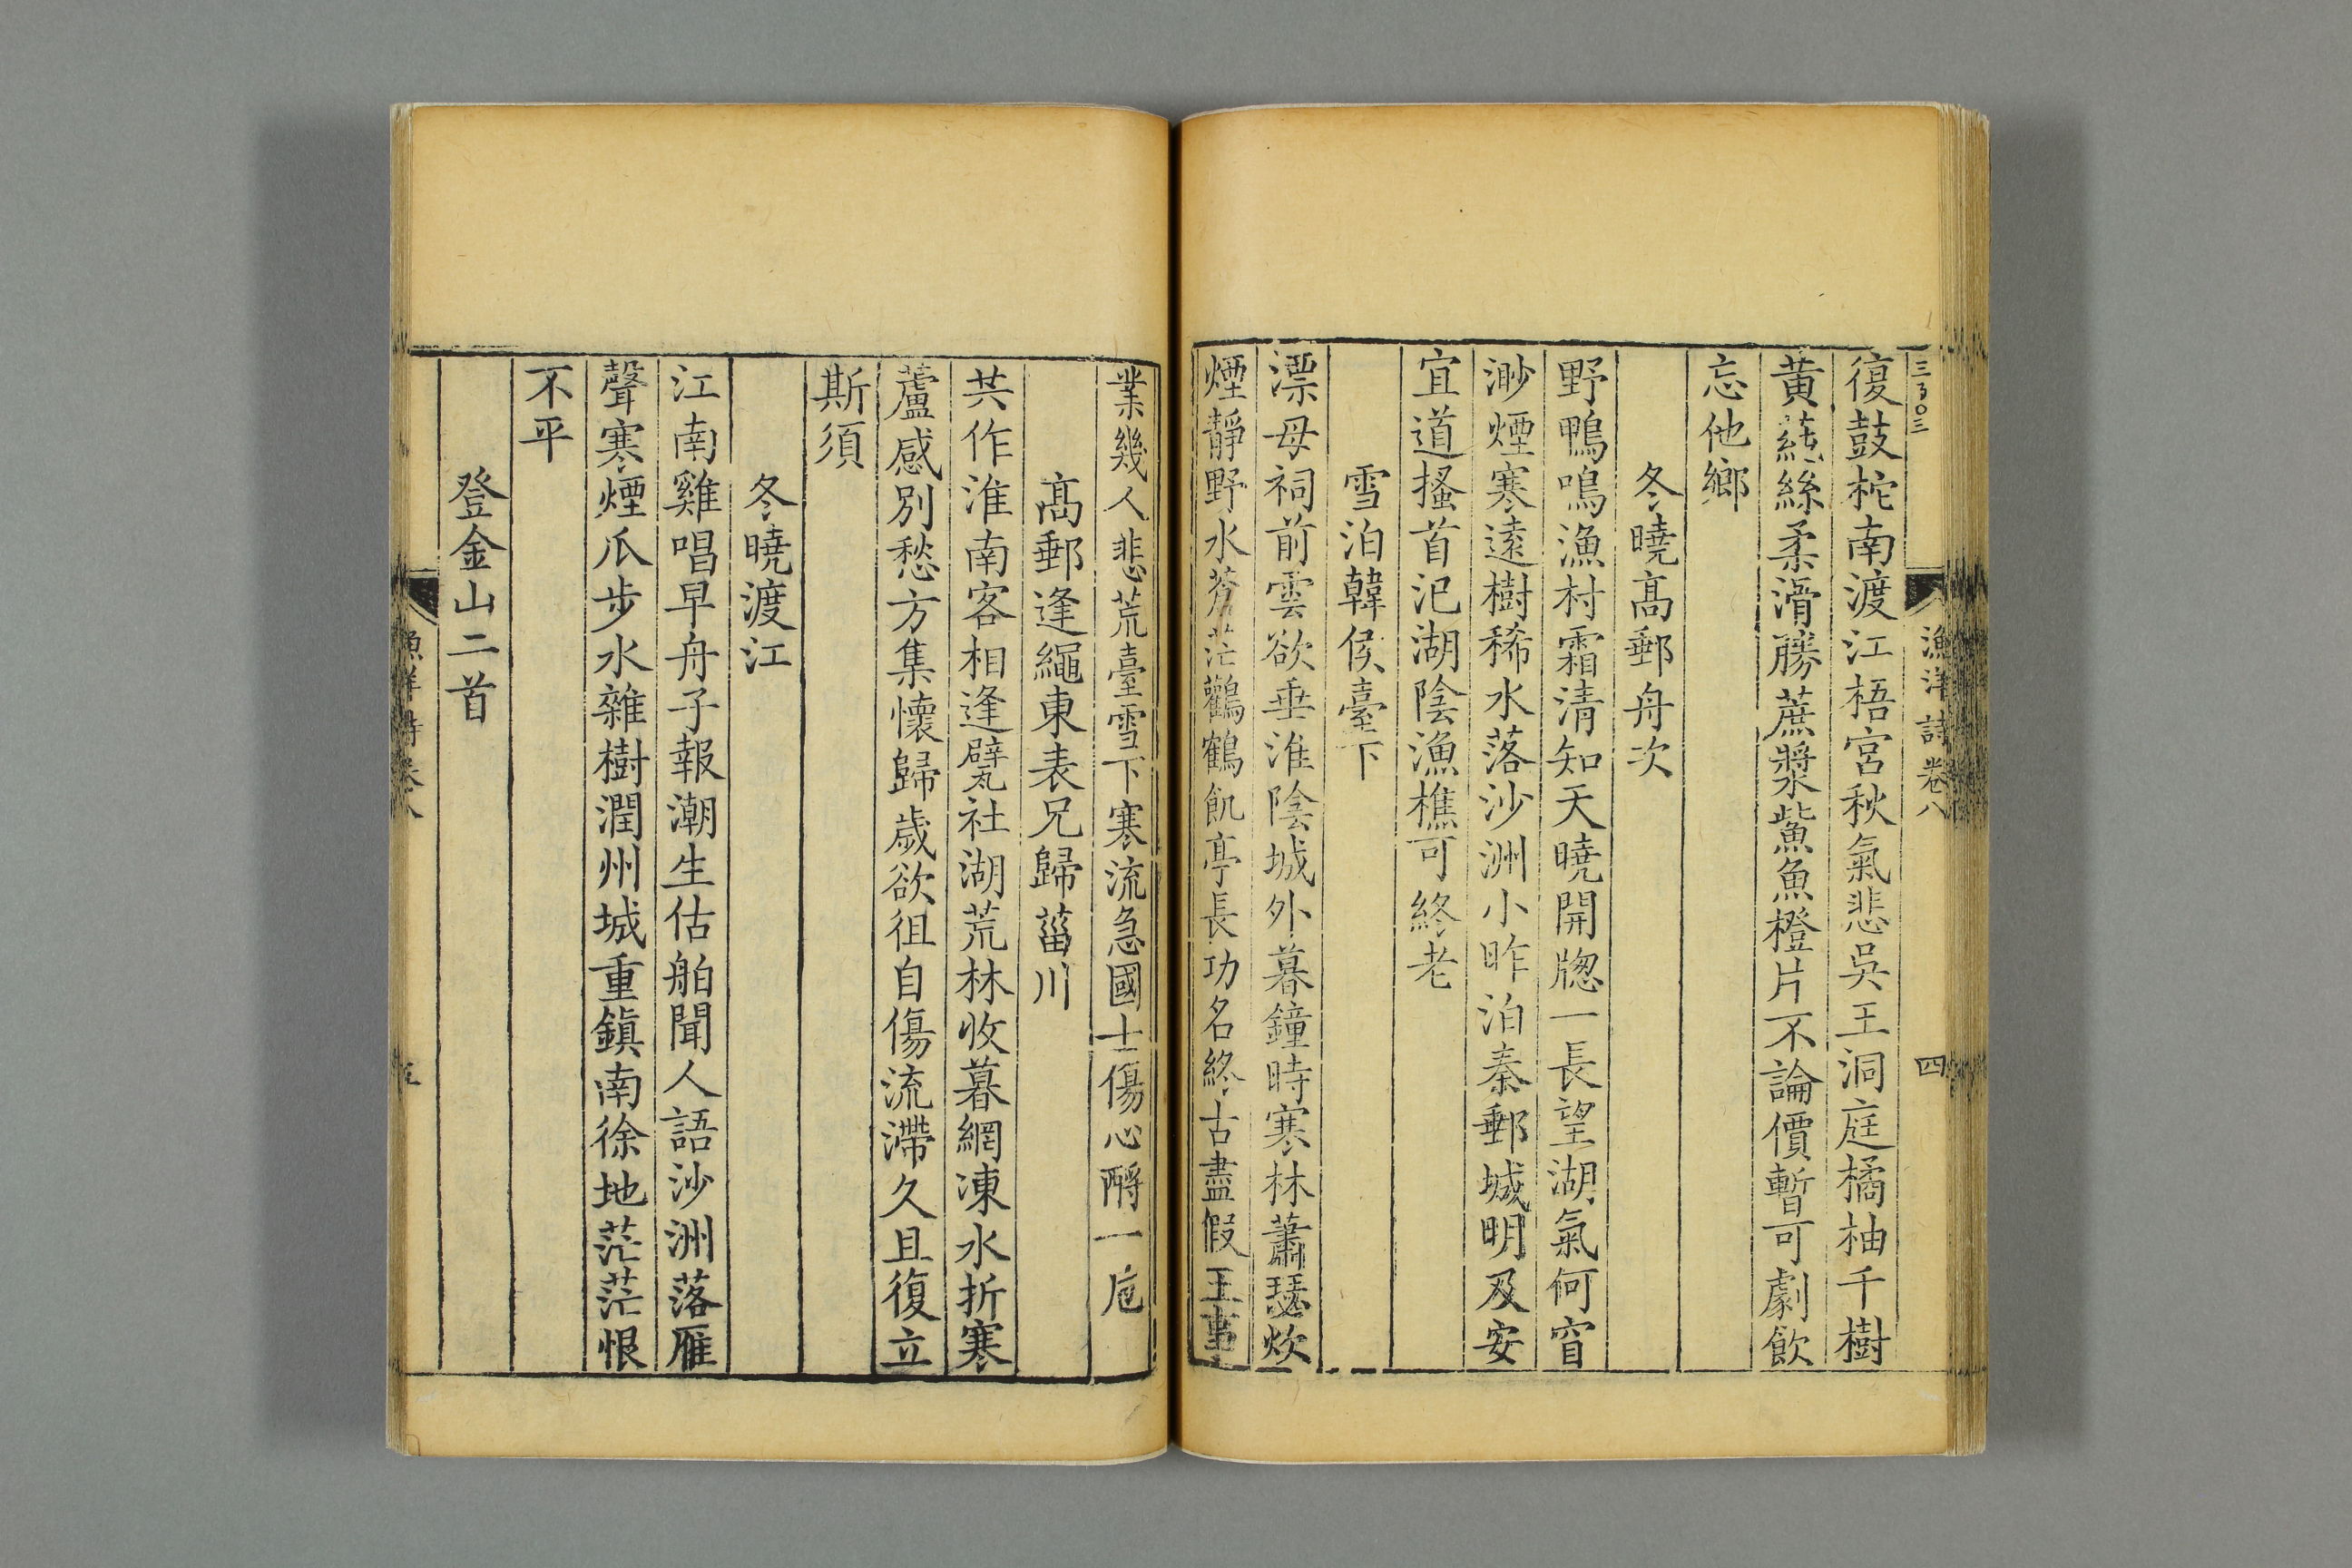 漁洋詩卷八
四
復鼓柁南渡江梧宮秋氣悲吳王洞庭橘柚千樹
黃蓴絲柔滑勝蔗漿鮆魚橙片不論價暫可劇飲
忘他鄉
冬曉髙郵舟次
野鴨鳴漁村霜清知天曉開牎一長望湖氣何窅
渺煙寒遠樹稀水落沙洲小昨泊秦郵城明及安
宜道搔首氾湖陰漁樵可終老
雪泊韓侯臺下
漂母祠前雲欲垂淮陰城外暮鐘時寒林蕭瑟炊
煙靜野水蒼茫鸛鶴飢亭長功名終古盡假王事
業幾人悲荒臺雪下寒流急國士傷心酹一巵
髙郵逢繩東表兄歸菑川
共作淮南客相逢甓社湖荒林收暮網凍水折寒
蘆感別愁方集懷歸歲欲徂自傷流滯久且復立
斯須
冬曉渡江
江南雞唱早舟子報潮生估舶聞人語沙洲落雁
聲寒煙瓜步水雜樹潤州城重鎭南徐地茫茫恨
不平
登金山二首